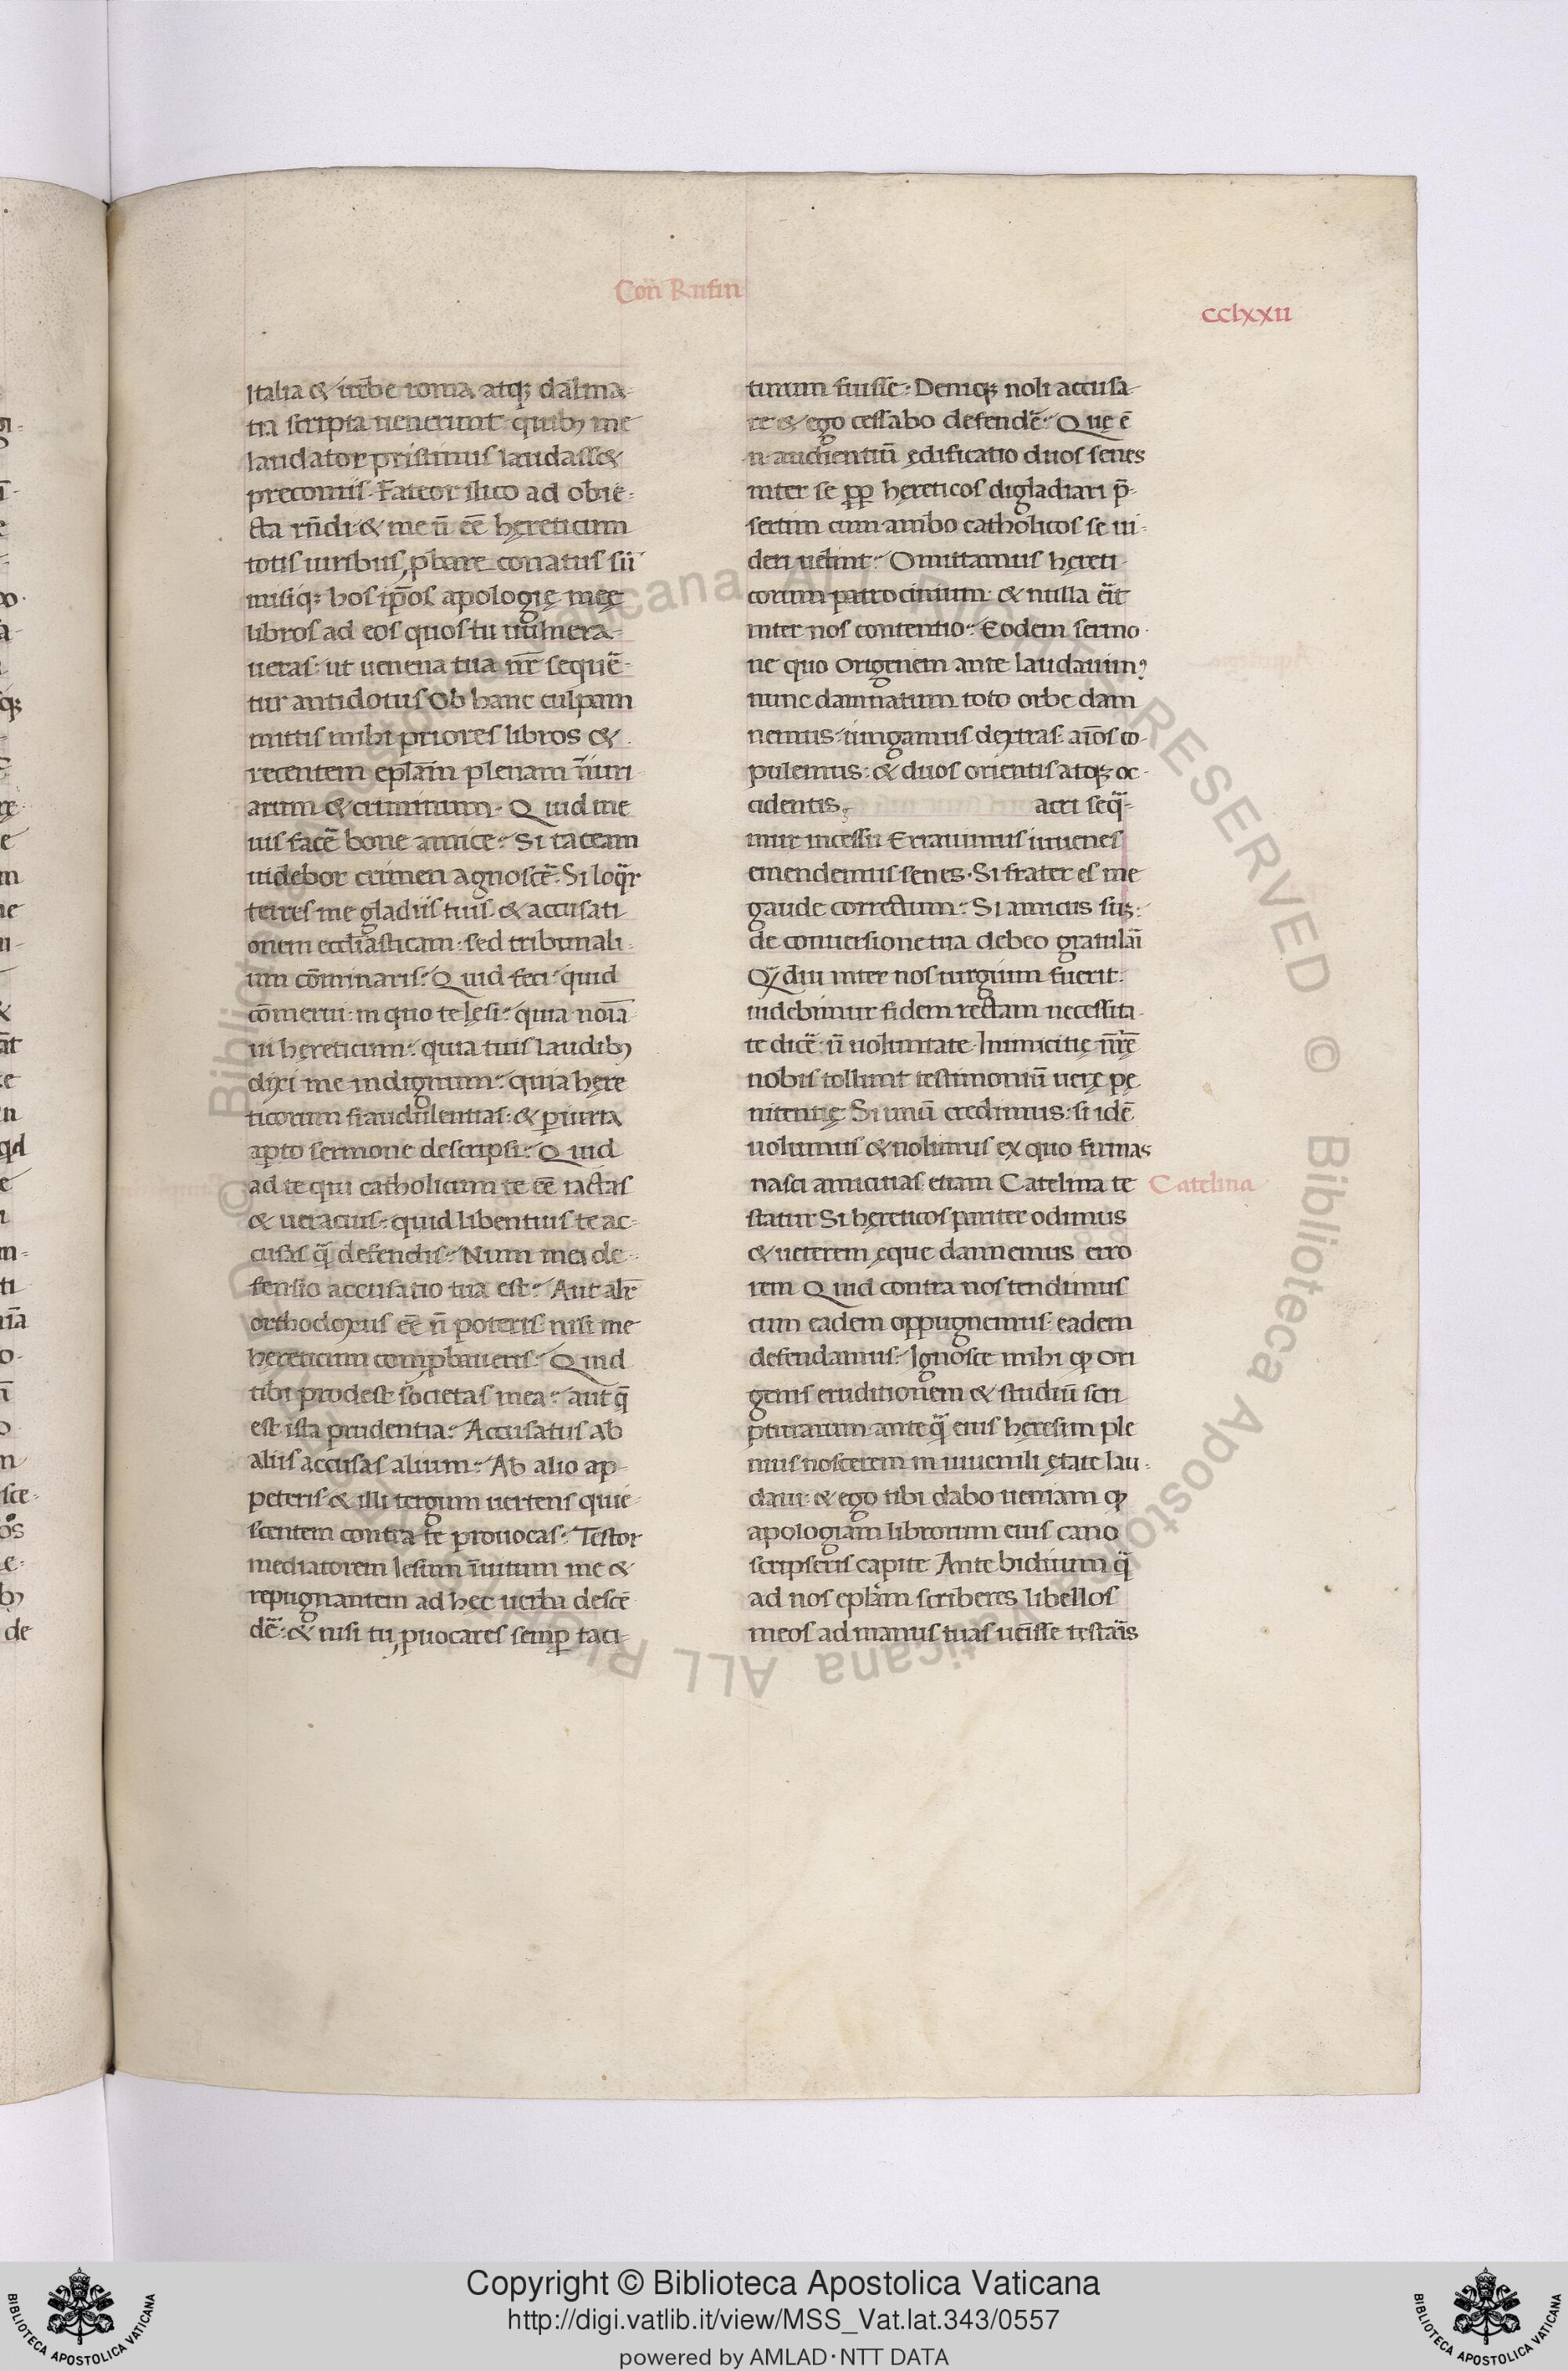 Con̄ Rufin
cclxxii
Italia & urbe roma atq; dalma-
tia scripta uenerunt quib; me
laudator pristinus laudass&
preconiis. Fateor ilico ad obie-
cta rn̄di. & me n̄ eē hęreticum
totis uiribus ꝓbare conatus sū
misiq; hos ip̄os apologię męę
libros ad eos quos tu uulnera-
ueras: ut uenena tua nr̄e sequē-
tur antidotus Ob hanc culpam
mittis mihi priores libros &
recentem epl̄am plenam īiuri
arum & criminum. Quid me
uis facē bone amice: Si taceam
uidebor crimen agnoscē. Si loqr̄
terres me gladiis tuis. & accusati
onem eccl̄iasticam: sed tribunali-
um cōminaris: Quid feci. quid
cōmerui. in quo te lęsi: quia noīa
ui hęreticum: quia tuis laudib;
dixi me indignum: quia hęre
ticorum fraudulentias: & ꝑiuria
aꝑto sermone descripsi: Quid
ad te qui catholicum te eē iactas
& ueracius: quid libentius te ac-
cusas q̄ defendis: Num mei de-
fensio accusatio tua est: Aut alr̄
orthodoxus eē n̄ poteris nisi me
hęreticum comꝓbaueris: Quid
tibi prodest societas mea: aut q̄
est ista prudentia: Accusatus ab
aliis accusas alium: Ab alio ap-
peteris & illi tergum uertens quie-
scentem contra te prouocas: Testor
mediatorem Iesum īuitum me &
repugnantem ad hęc uerba descē
dē: & nisi tu ꝓuocares semꝑ taci-
turum fuisse: Deniq; noli accusa-
re & ego cessabo defendē: Quę ē
n̄ audientiū ędificatio duos senes
inter se ꝓꝑ hęreticos digladiari p̄-
sertim cum ambo catholicos se ui-
deri uelint: Omittamus hęreti-
corum patrocinium & nulla erit
inter nos contentio: Eodem sermo-
ne quo Origenem ante laudauim9
nunc damnatum toto orbe dam
nemus. iungamus dextras. aīos co-
pulemus: & duos orientis atq; oc-
cidentis, acri seq̄-
mur incessu Errauimus iuuenes
emendemus senes. Si frater es me
gaude correctum: Si amicus sū:
de conuersione tua debeo gratulari
Qdiu inter nos iurgium fuerit:
uidebimur fidem rectam necessita-
te dicē: n̄ uoluntate. Inimicitię nr̄ę
nobis tollunt testimoniū uerę pę
nitentię Si unū credimus: si idē
uolumus & nolumus ex quo firmas
nasci amicitias etiam Catelina te
Catelina
statur Si hęreticos pariter odimus
& ueterem ęque damnemus erro
rem Quid contra nos tendimus
cum eadem oppugnemus: eadem
defendamus: Ignosce mihi ꝙ Ori
genis eruditionem & studiū scri
pturarum ante q̄ eius hęresim ple
nius noscerem in iuuenili ętate lau-
daui: & ego tibi dabo ueniam ꝙ
apologiam librorum eius cano
scripseris capite Ante biduum q̄
ad nos epl̄am scriberes libellos
meos ad manus tuas uēisse testaris
© Biblioteca Apostolica Vaticana ALL RIGHTS RESERVED © Biblioteca Apostolica Vaticana ALL RIGHTS RESERVED
Copyright © Biblioteca Apostolica Vaticana
http://digi.vatlib.it/view/MSS_Vat.lat.343/0557
powered by AMLAD·NTT DATA
BIBLIOTECA APOSTOLICA VATICANA
BIBLIOTECA APOSTOLICA VATICANA